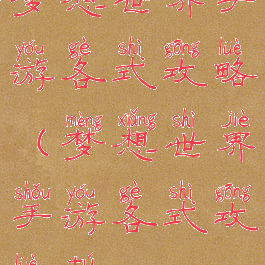 梦想世界手
yóu gè shì gōng lüè
游各式攻略
mèng xiǎng shì jiè
（梦想世界
shǒu yóu gè shì gōng
手游各式攻
lüè